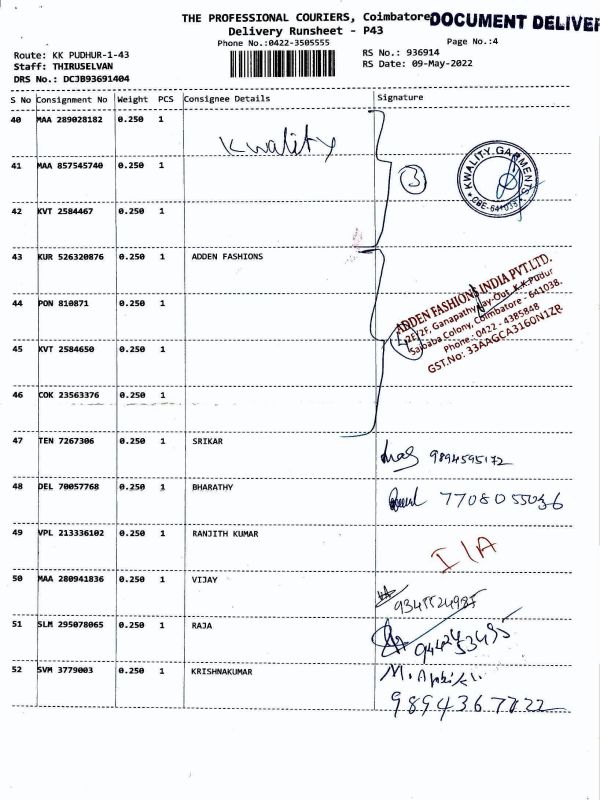 THE PROFESSIONAL COURIERS, Coimbatore
DOCUMENT DELIVER
Delivery Runsheet - P43
Phone No.:0422-3505555
Page No.:4
Route: KK PUDHUR-1-43
Staff: THIRUSELVAN
DRS No.: DCJB93691404
RS No.: 936914
RS Date: 09-May-2022
S No Consignment No Weight PCS Consignee Details Signature
40 MAA 289028182 0.250 1
Kwality
41 MAA 857545740 0.250 1
3
KWALITY GARMENTS
CBE-641038
42 KVT 2584467 0.250 1
43 KUR 526320876 0.250 1 ADDEN FASHIONS
ADDEN FASHIONS INDIA PVT.LTD.
2E/2F, Ganapathy Lay-Out, K.K.Pudur
Saibaba Colony, Coimbatore - 641038.
Phone : 0422 - 4385848
GST.No: 33AAGCA3160N1ZR
44 PON 810871 0.250 1
4
45 KVT 2584650 0.250 1
46 COK 23563376 0.250 1
47 TEN 7267306 0.250 1 SRIKAR 9894595172
48 DEL 70057768 0.250 1 BHARATHY 7708055036
49 VPL 213336102 0.250 1 RANJITH KUMAR I/A
50 MAA 280941836 0.250 1 VIJAY
51 SLM 295078065 0.250 1 RAJA
52 SVM 3779003 0.250 1 KRISHNAKUMAR
9894367722